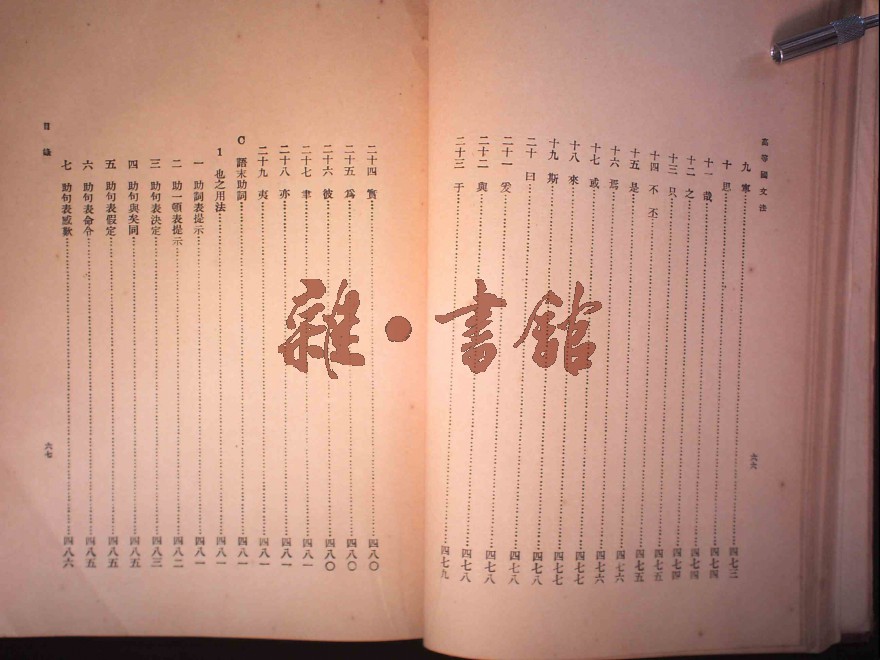 高等國文法
九 寧 四七三
十 思 四七四
十一 哉 四七四
十二 之 四七四
十三 只 四七四
十四 不 丕 四七五
十五 是 四七五
十六 焉 四七六
十七 或 四七六
十八 來 四七七
十九 斯 四七七
二十 曰 四七八
二十一 爰 四七八
二十二 與 四七八
二十三 于 四七八
四七九
六六
二十四 實 四八〇
二十五 爲 四八〇
二十六 彼 四八〇
二十七 聿 四八一
二十八 亦 四八一
二十九 夷 四八一
C 語末助詞 四八一
1 也之用法 四八一
一 助詞表提示 四八一
二 助一頓表提示 四八二
三 助句表決定 四八三
四 助句與矣同 四八五
五 助句表假定 四八五
六 助句表命令 四八五
七 助句表感歎 四八六
目錄
六七
雜·書館